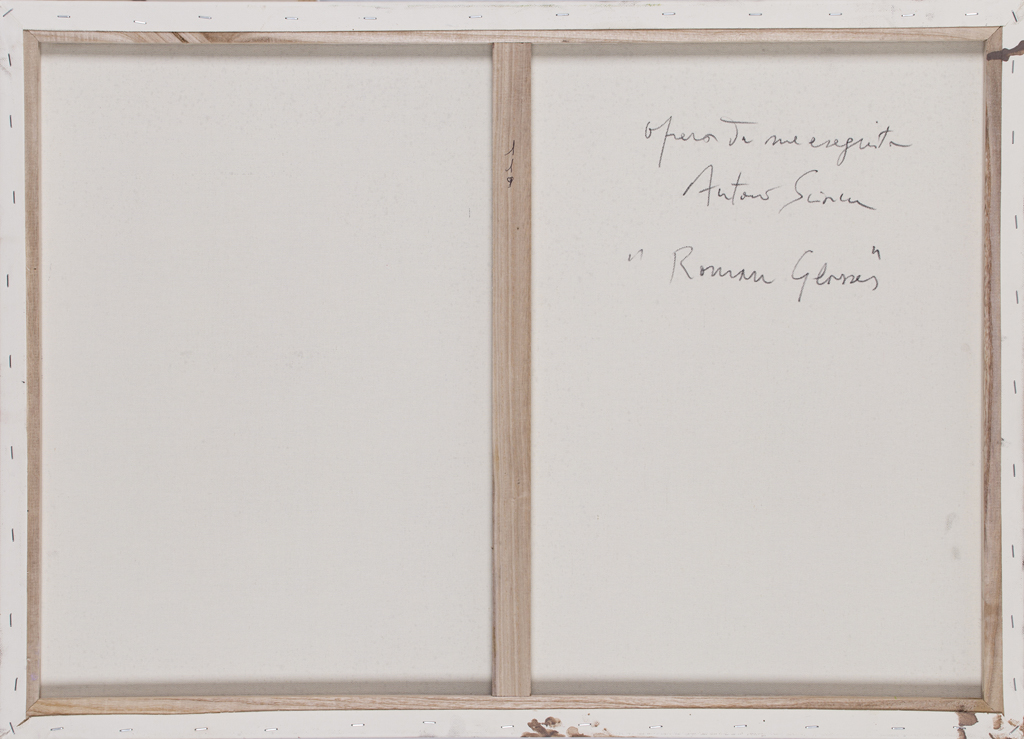 opera da me eseguita
Antonio
" Roman Glasses "